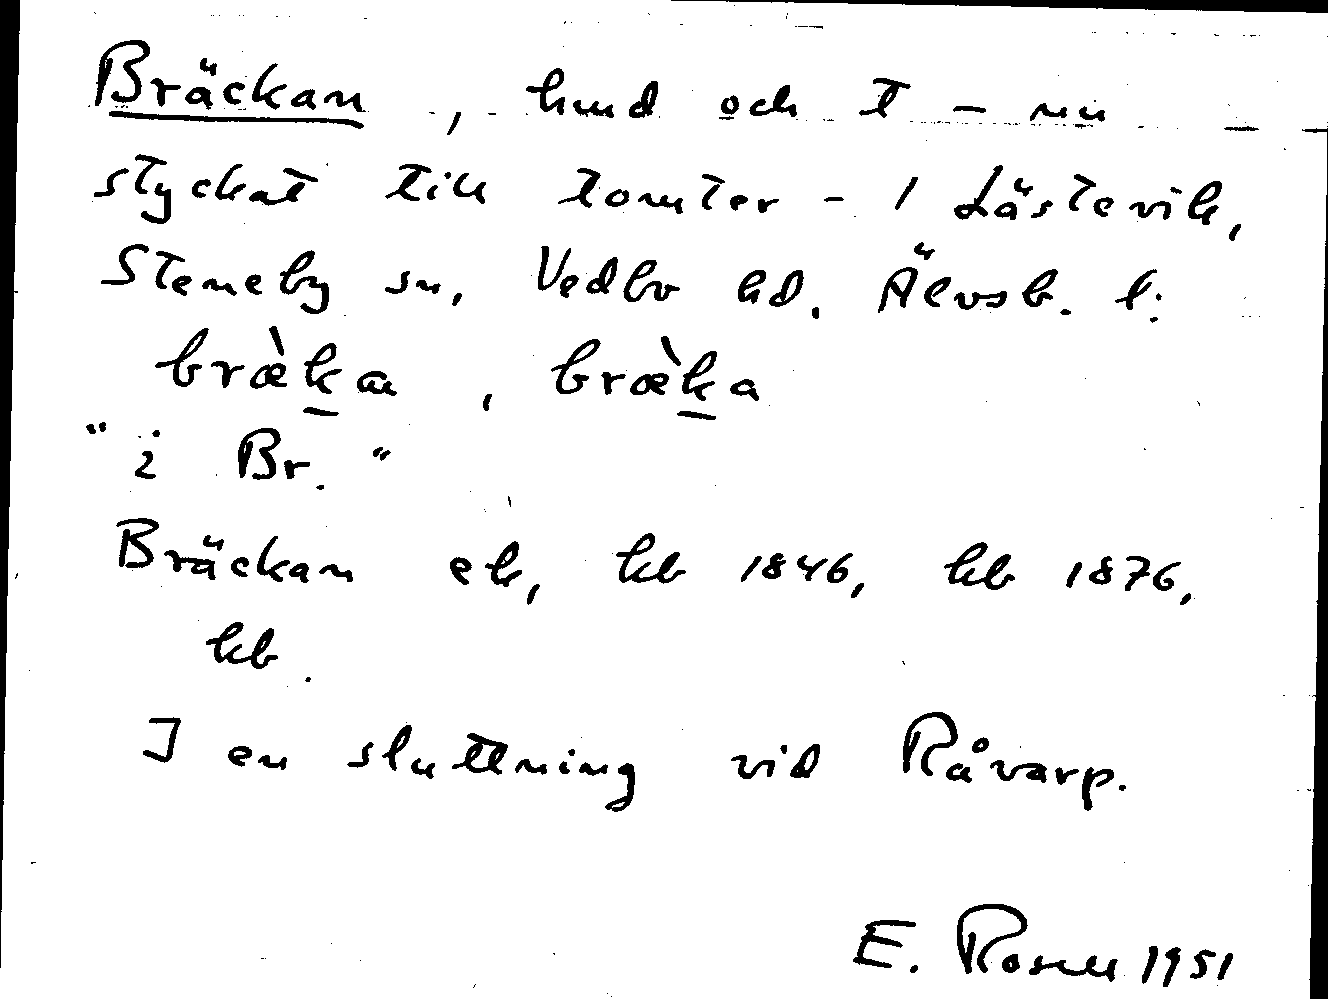 Bräckan, hmd och t - nu
styckat till tomter - / Låstevik,
Steneby sn, Vedbo hd. Älvsb. l:
bræ̀k̲an, bræ̀k̲a
"i Br."
Bräckan ek, kb 1846, kb 1876,
kb.
I en sluttning vid Råvarp.
E. Rosell 1951